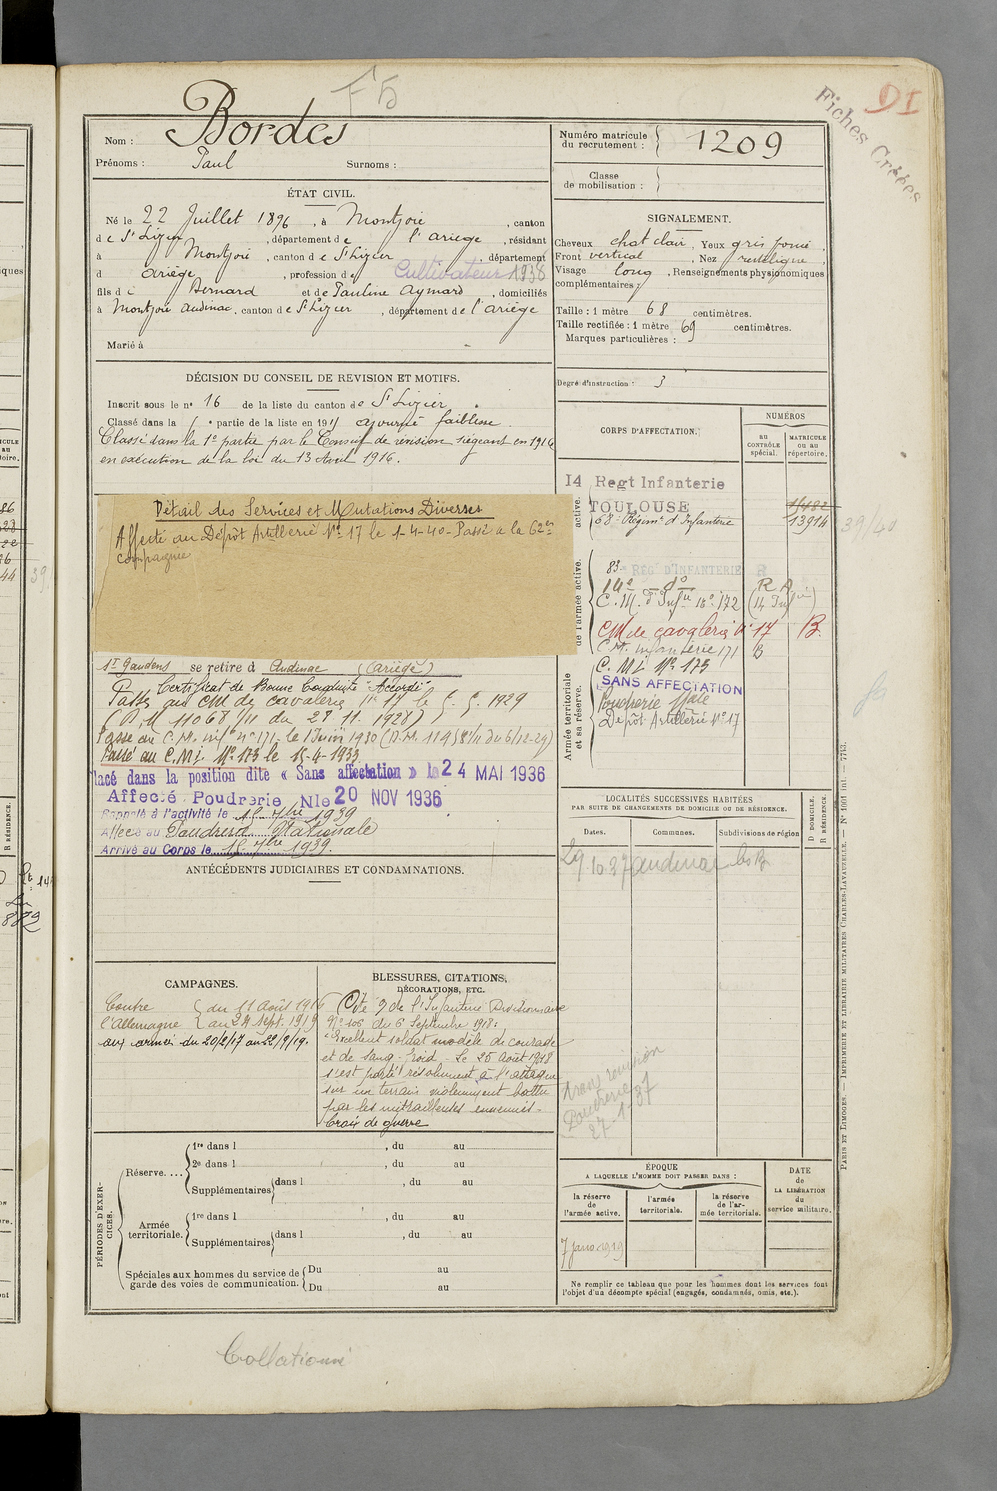 F5
DI
Fiches Créées
Nom : Bordes
Prénoms : Paul Surnoms :
Numéro matricule du recrutement : 1209
Classe de mobilisation :
ÉTAT CIVIL.
Né le 22 Juillet 1896, à Montjoie, canton
de St Lizier, département de l'ariège, résidant
à Montjoie, canton de St Lizier, département
d ariège, profession de Cultivateur 1936
fils de Bernard et de Pauline Aymard, domiciliés
à Montjoie audinac, canton de St Lizier, département de l'ariège
Marié à
SIGNALEMENT.
Cheveux chat clair, Yeux gris foncé,
Front vertical, Nez rectiligne,
Visage long, Renseignements physionomiques
complémentaires :
Taille : 1 mètre 68 centimètres.
Taille rectifiée : 1 mètre 69 centimètres.
Marques particulières :
Degré d'instruction : 3
DÉCISION DU CONSEIL DE REVISION ET MOTIFS.
Inscrit sous le n° 16 de la liste du canton de St Lizier.
Classé dans la partie de la liste en 191 ajourné faiblesse.
Classé dans la 1e partie par le Conseil de révision siégeant en 1916
en exécution de la loi du 13 Avril 1916.
Détail des Services et Mutations Diverses
Affecté au Dépôt Artillerie N° 17 le 1-4-40 - Passé a la 62e
Compagnie
St Gaudens se retire à Audinac (Ariège)
Certificat de Bonne Conduite "Accordé"
Passé au CM de cavalerie n° 17 le 5. 5. 1929
(D.M 11068/11 du 28 11. 1928)
Passé au C.M. infie n° 171 le 1 Juin 1930
Passé au C.M.i. N° 173 le 15-4-1933
Placé dans la position dite « Sans affectation » le 24 MAI 1936
Affecté Poudrerie Nle 20 NOV 1936
Rappelé à l'activité le 15 7bre 1939
Affecté au Poudrerie Nationale
Arrivé au Corps le 15 7bre 1939.
CORPS D'AFFECTATION.
NUMÉROS
au CONTRÔLE spécial.
MATRICULE ou au répertoire.
14 Regt Infanterie
TOULOUSE 14482
58e Régimt d'Infanterie 13914
39/40
83 REGt D'INFANTERIE R
14e do R A
C.M. d'Infie n° 172 (14 Infie)
CM de cavalerie n° 17 B.
C.M. infanterie 171 B
C. M.i. N° 173
SANS AFFECTATION
Poudrerie Nale
Dépôt Artillerie N° 17
active.
de l'armée active.
Armée territoriale et sa réserve.
LOCALITÉS SUCCESSIVES HABITÉES
PAR SUITE DE CHANGEMENTS DE DOMICILE OU DE RÉSIDENCE.
D DOMICILE. R RÉSIDENCE.
Dates. Communes. Subdivisions de région
29.10.37 audinac
ANTÉCÉDENTS JUDICIAIRES ET CONDAMNATIONS.
CAMPAGNES.
Contre l'Allemagne { du 11 Août 1916
au 24 Sept. 1919
aux armées du 20/2/17 au 22/9/19.
BLESSURES, CITATIONS,
DÉCORATIONS, ETC.
Cité 9 de l'Infanterie Divisionnaire
N° 106 du 6 Septembre 1918 :
"Excellent soldat modèle de courage
et de sang-froid. Le 25 Août 1918
s'est porté résolument à l'attaque
sur un terrain violemment battu
par les mitrailleuses ennemies -
Croix de guerre
Poudrerie
27-1-37
PÉRIODES D'EXERCICES.
Réserve.... 1re dans l , du au
2e dans l , du au
Supplémentaires dans l , du au
Armée territoriale. 1re dans l , du au
Supplémentaires dans l , du au
Spéciales aux hommes du service de garde des voies de communication. Du au
Du au
ÉPOQUE
A LAQUELLE L'HOMME DOIT PASSER DANS :
la réserve de l'armée active.
l'armée territoriale.
la réserve de l'armée territoriale.
DATE de LA LIBÉRATION du service militaire.
7 janv. 1919
Ne remplir ce tableau que pour les hommes dont les services font
l'objet d'un décompte spécial (engagés, condamnés, omis, etc.).
PARIS ET LIMOGES. — IMPRIMERIE ET LIBRAIRIE MILITAIRES CHARLES-LAVAUZELLE. — N° 1001 int. — 7713.
Collationné